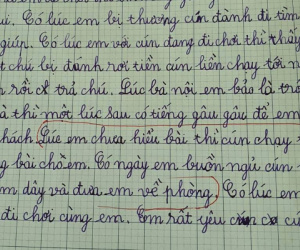 ui. Có lúc em bị thương cún đành đi tìm
giúp. Có lúc em với cún đang đi chơi thì thấy
chú bị đánh rơi tiền cún liền chạy tới n
rồi trả chú. Lúc bà nội em bảo là trô
à thì một lúc sau có tiếng gâu gâu để em
khách. Lúc em chưa hiểu bài thì cún chạy
g bài chỗ em. Có ngày em buồn ngủ cún
m dậy và đưa em về phòng. Có lúc em
đi chơi cùng em. Em rất yêu cún củ